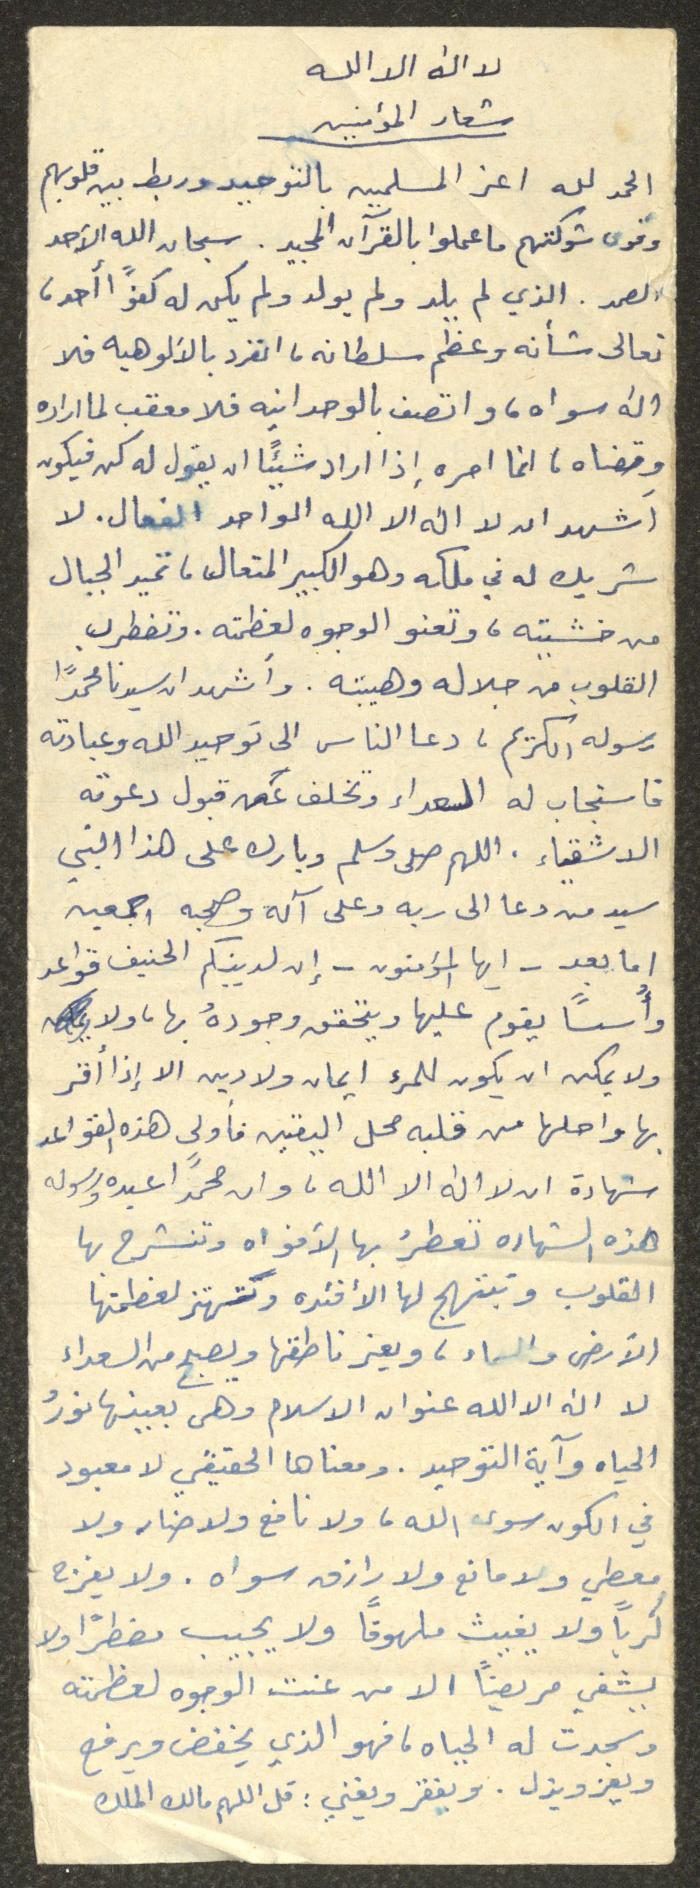 لا اله الا الله
شعار المؤمنين
الحمد لله اعز المسلمين بالتوحيد وربط بين قلوبهم
وقوى شوكتهم ما عملوا بالقرآن المجيد . سبحان الله الأحد
الصمد . الذي لم يلد ولم يولد ولم يكن له كفوًا أحد ،
تعالى شأنه وعظم سلطانه ، انفرد بالألوهيه فلا
اله سواه ، واتصف بالوحدانيه فلا معقب لما اراده
وقضاه ، انما امره إذا اراد شيئًا ان يقول له كن فيكون
أشهد ان لا اله الا الله الواحد الفعال . لا
شريك له في ملكه وهو الكبير المتعال ، تميد الجبال
من خشيته ، وتعنو الوجوه لعظمته . وتضطرب
القلوب من جلاله وهيبته . وأشهد ان سيدنا محمدًا
رسوله الكريم ، دعا الناس الى توحيد الله وعبادته
فاستجاب له السعداء وتخلف عن قبول دعوته
الاشقياء . اللهم صلى وسلم وبارك على هذا النبي
سيد من دعا الى ربه وعلى آله وصحبه اجمعين
اما بعد - ايها المؤمنون - إن لدينكم الحنيف قواعد
وأُسسًا يقوم عليها ويتحقق وجودهُ بها ، ولا
ولا يمكن ان يكون للمرء ايمان ولا دين الا إذا أقر
بها واحلها من قلبه محل اليقين فأولى هذه القواعد
شهادة ان لا اله الا الله ، وان محمدًا عبده ورسوله
هذه الشهاده تعطرُ بها الأفواه وتنشرح لها
القلوب وتبتهج لها الأفئده وتهتز لعظمتها
الأرض والسماء ، ويعز ناطقها ويصبح من السعداء
لا اله الا الله عنوان الاسلام وهى بعينها نورُ
الحياه وآية التوحيد . ومعناها الحقيقي لا معبود
في الكون سوى الله ، ولا نافع ولا ضار ولا
معطي ولا مانع ولا رازق سواه . ولا يفرج
كربًا ولا يغيث ملهوفًا ولا يجيب مضطرًا ولا
يشفي مريضًا الا من عنت الوجوه لعظمته
وسجدت له الجباه ، فهو الذي يخفض ويرفع
ويعز ويذل . ويفقر ويغني : قل اللهم مالك الملك